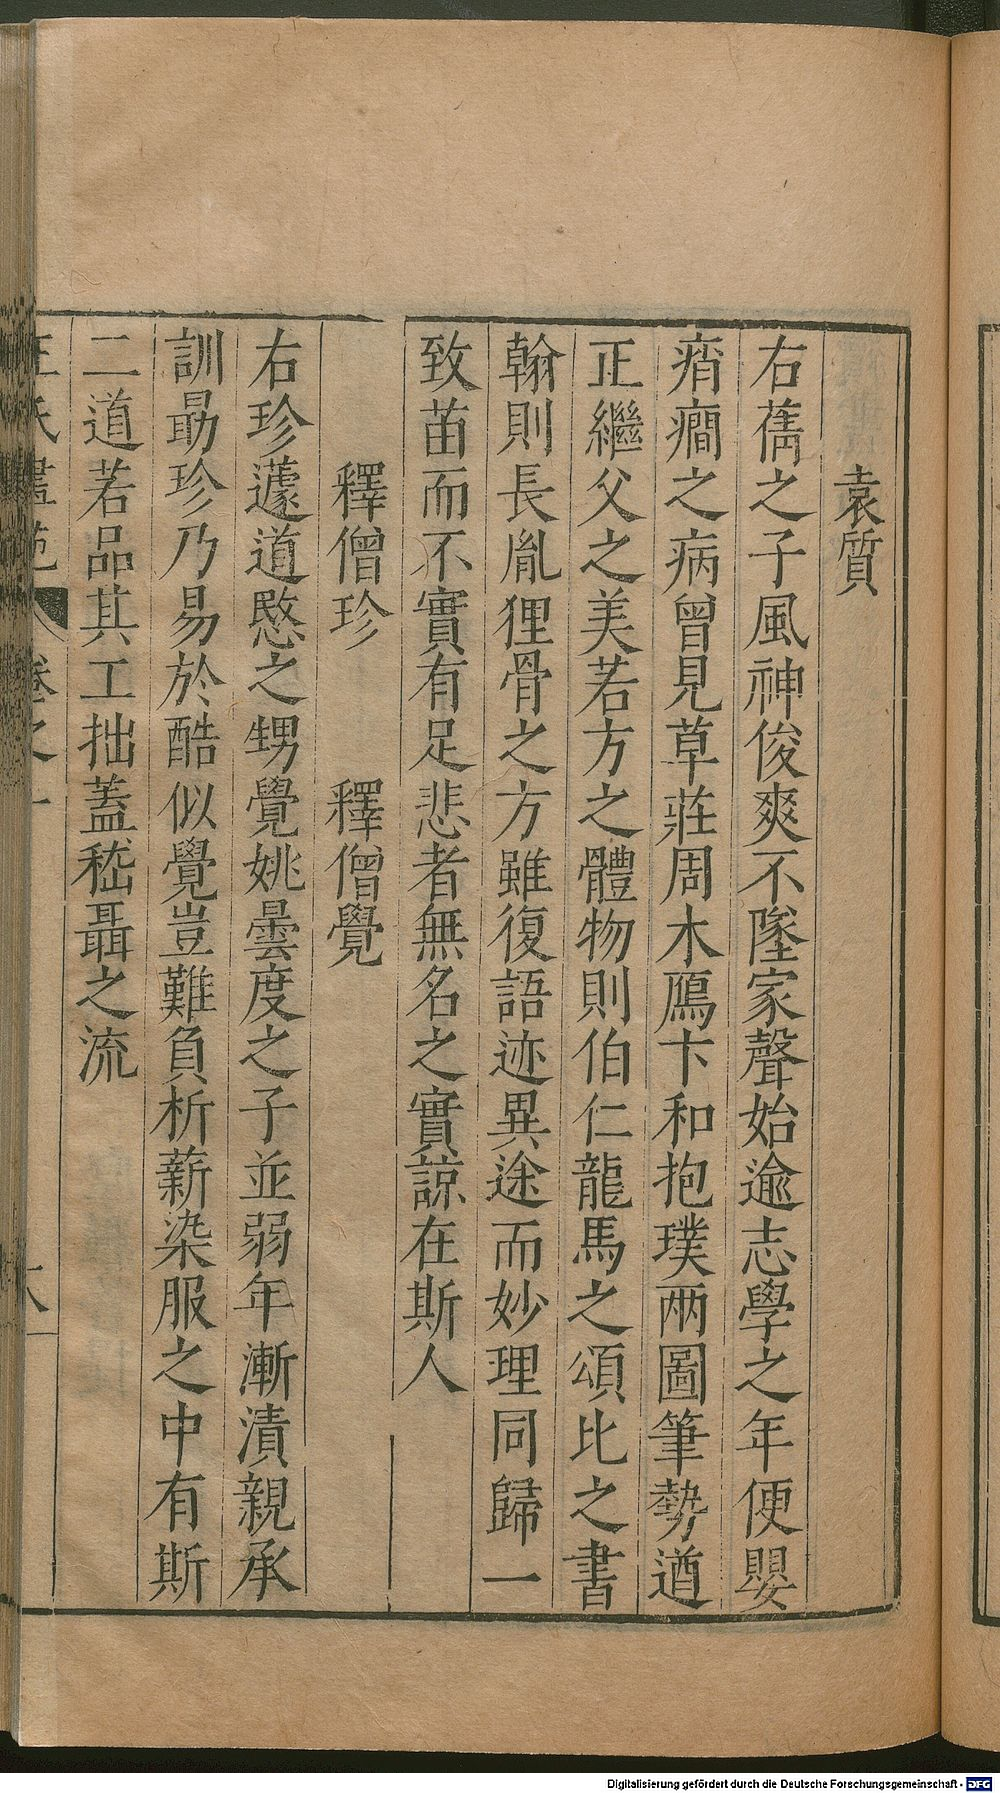 袁質
右蒨之子風神俊爽不墜家聲始逾志學之年便嬰
痟癇之病曾見草莊周木鴈卞和抱璞两圖筆勢遒
正繼父之美若方之體物則伯仁龍馬之頌比之書
翰則長胤狸骨之方雖復語迹異途而妙理同歸一
致苗而不實有足悲者無名之實諒在斯人
釋僧珍　釋僧覺
右珍蘧道愍之甥覺姚曇度之子並弱年漸漬親承
訓勗珍乃易於酷似覺豈難負析薪染服之中有斯
二道若品其工拙蓋嵇聶之流
王氏畫苑　卷之一
Digitalisierung gefördert durch die Deutsche Forschungsgemeinschaft - DFG